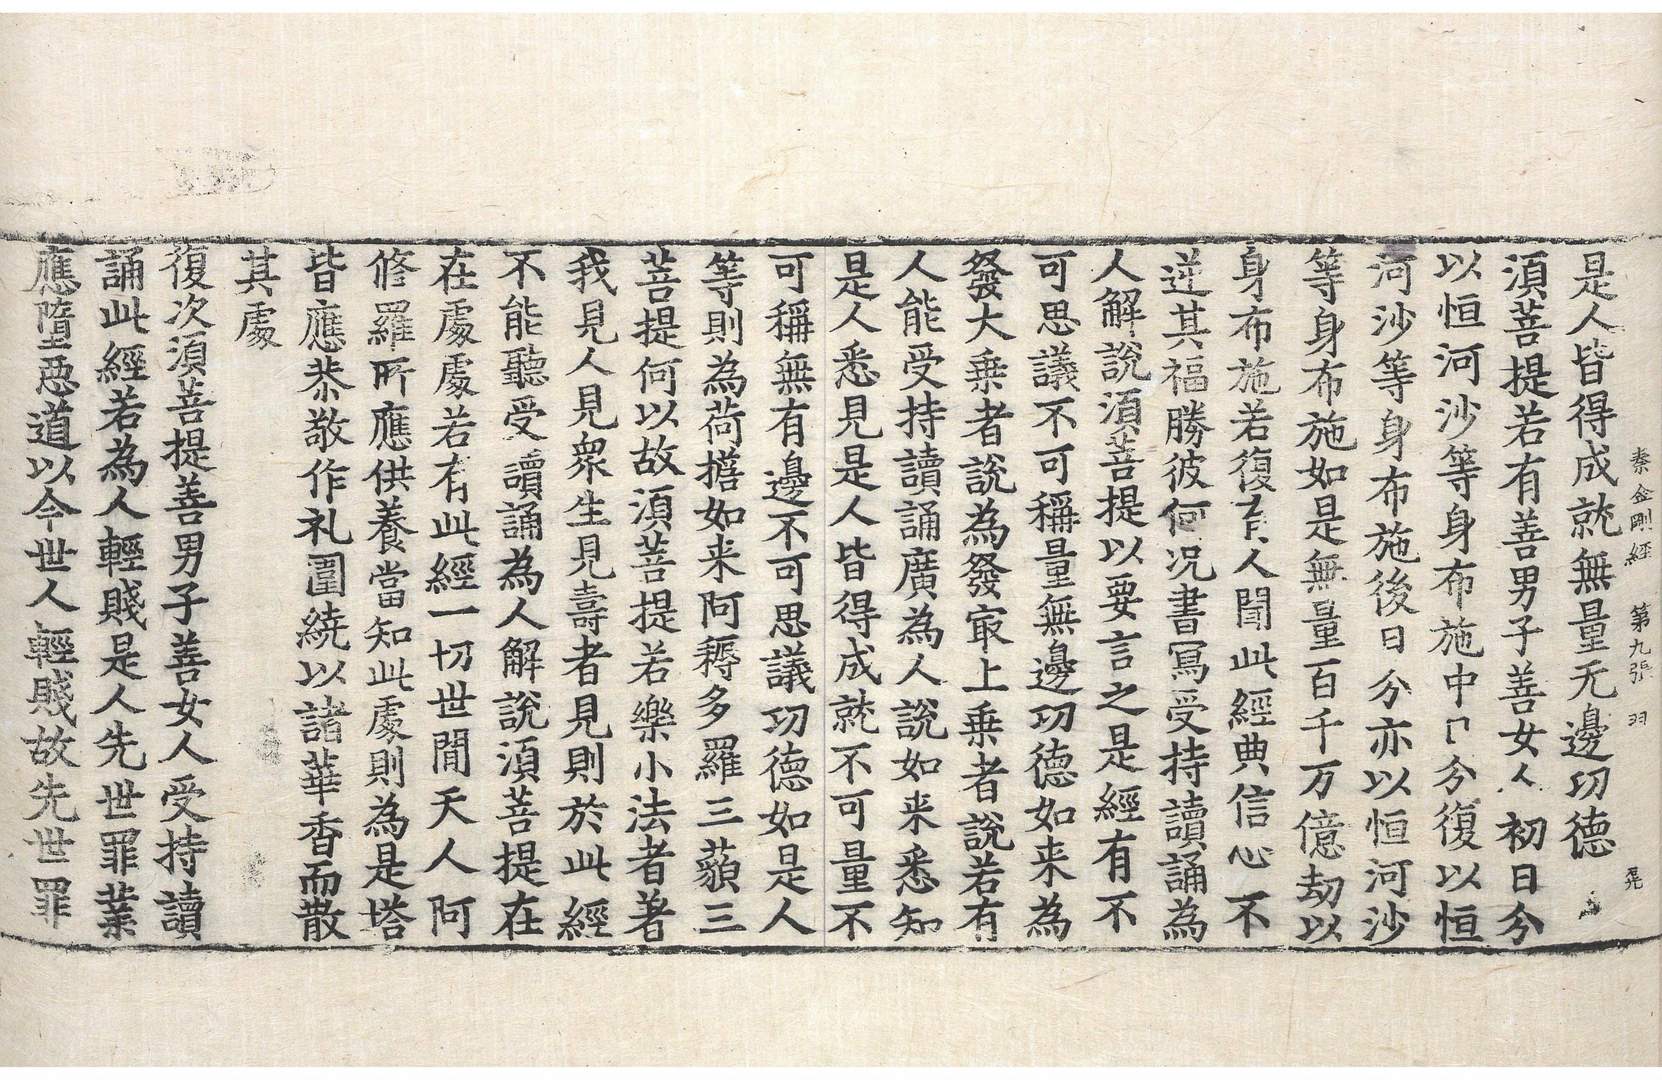 秦金剛經　第九張　羽　晃
是人皆得成就無量无邊功德
湏菩提若有善男子善女人初日分
以恒河沙等身布施中日分復以恒
河沙等身布施後日分亦以恒河沙
等身布施如是無量百千万億劫以
身布施若復有人聞此經典信心不
逆其福勝彼何况書冩受持讀誦為
人解說湏菩提以要言之是經有不
可思議不可稱量無邊功德如来為
發大乗者說為發㝡上乗者說若有
人能受持讀誦廣為人說如来悉知
是人悉見是人皆得成就不可量不
可稱無有邊不可思議功德如是人
等則為荷擔如来阿耨多羅三藐三
菩提何以故湏菩提若樂小法者著
我見人見衆生見壽者見則於此經
不能聽受讀誦為人解說湏菩提在
在處處若有此經一切世間天人阿
修羅所應供養當知此處則為是塔
皆應恭敬作礼圍繞以諸華香而散
其處
復次湏菩提善男子善女人受持讀
誦此經若為人輕賤是人先世罪業
應墮惡道以今世人輕賤故先世罪